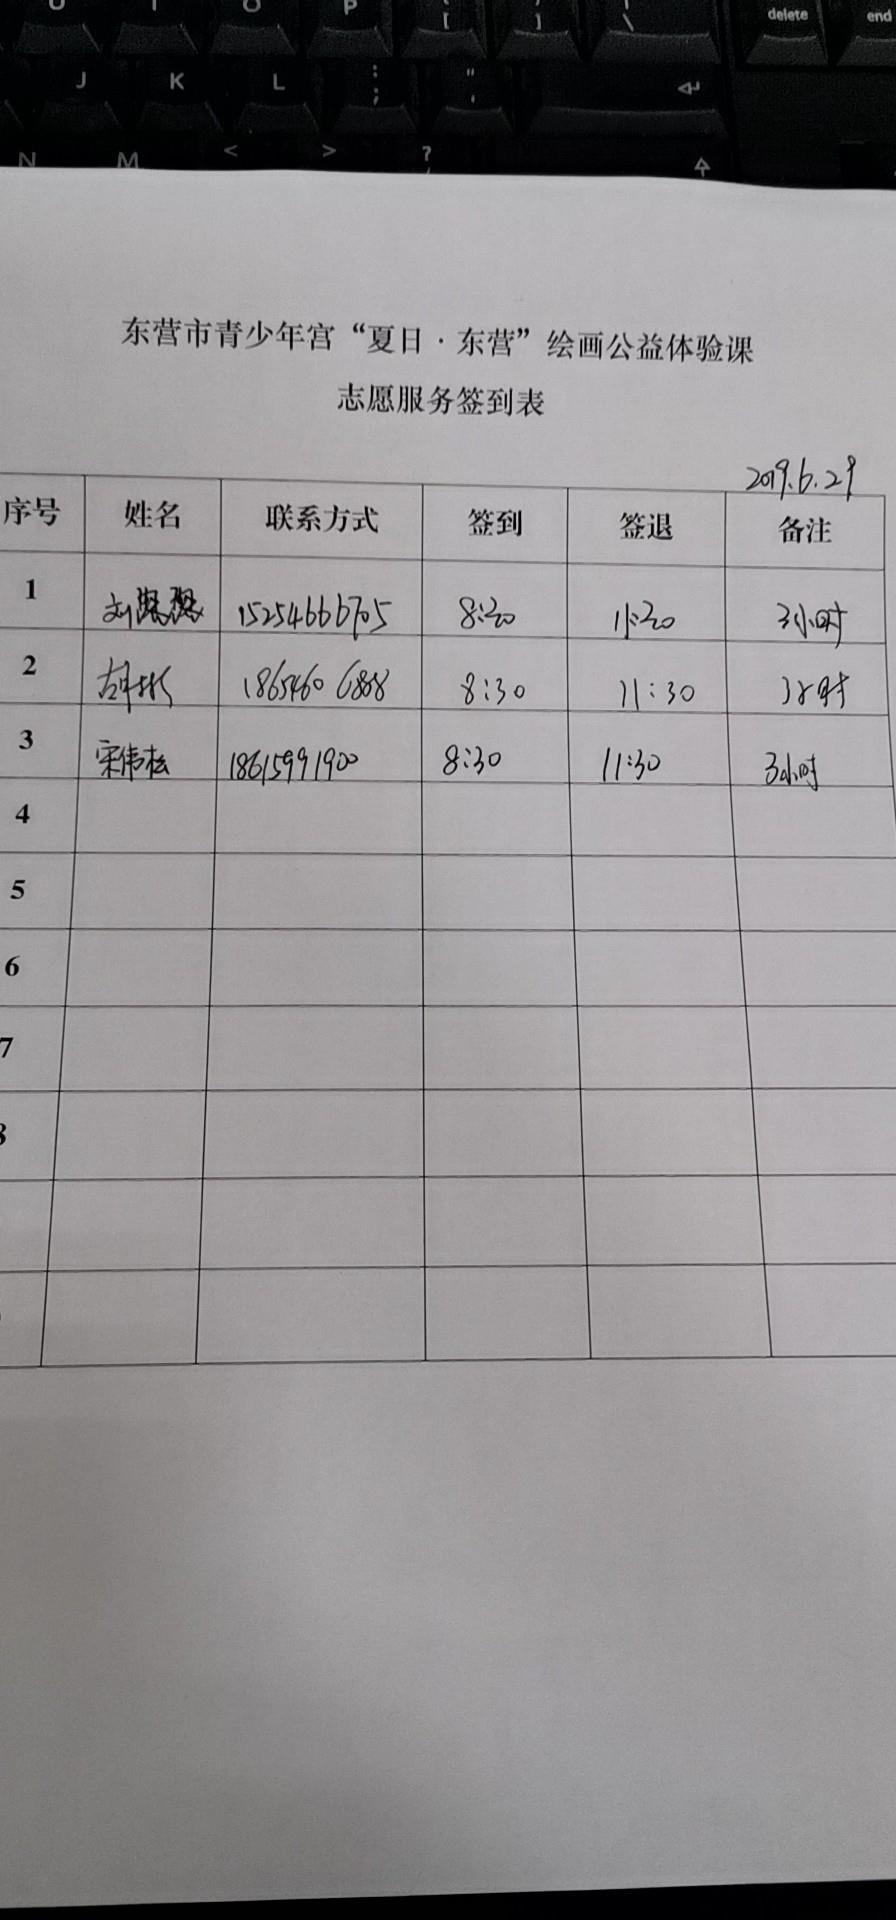 U I O P { [ } ] | \ delete end
J K L : ; " '
N M < > ?
东营市青少年宫“夏日·东营”绘画公益体验课
志愿服务签到表
2019.6.29
序号 姓名 联系方式 签到 签退 备注
1 刘 15254666705 8:30 11:30 3小时
2 胡彬 18654606888 8:30 11:30 3小时
3 宋伟松 18615991900 8:30 11:30 3小时
4
5
6
7
8